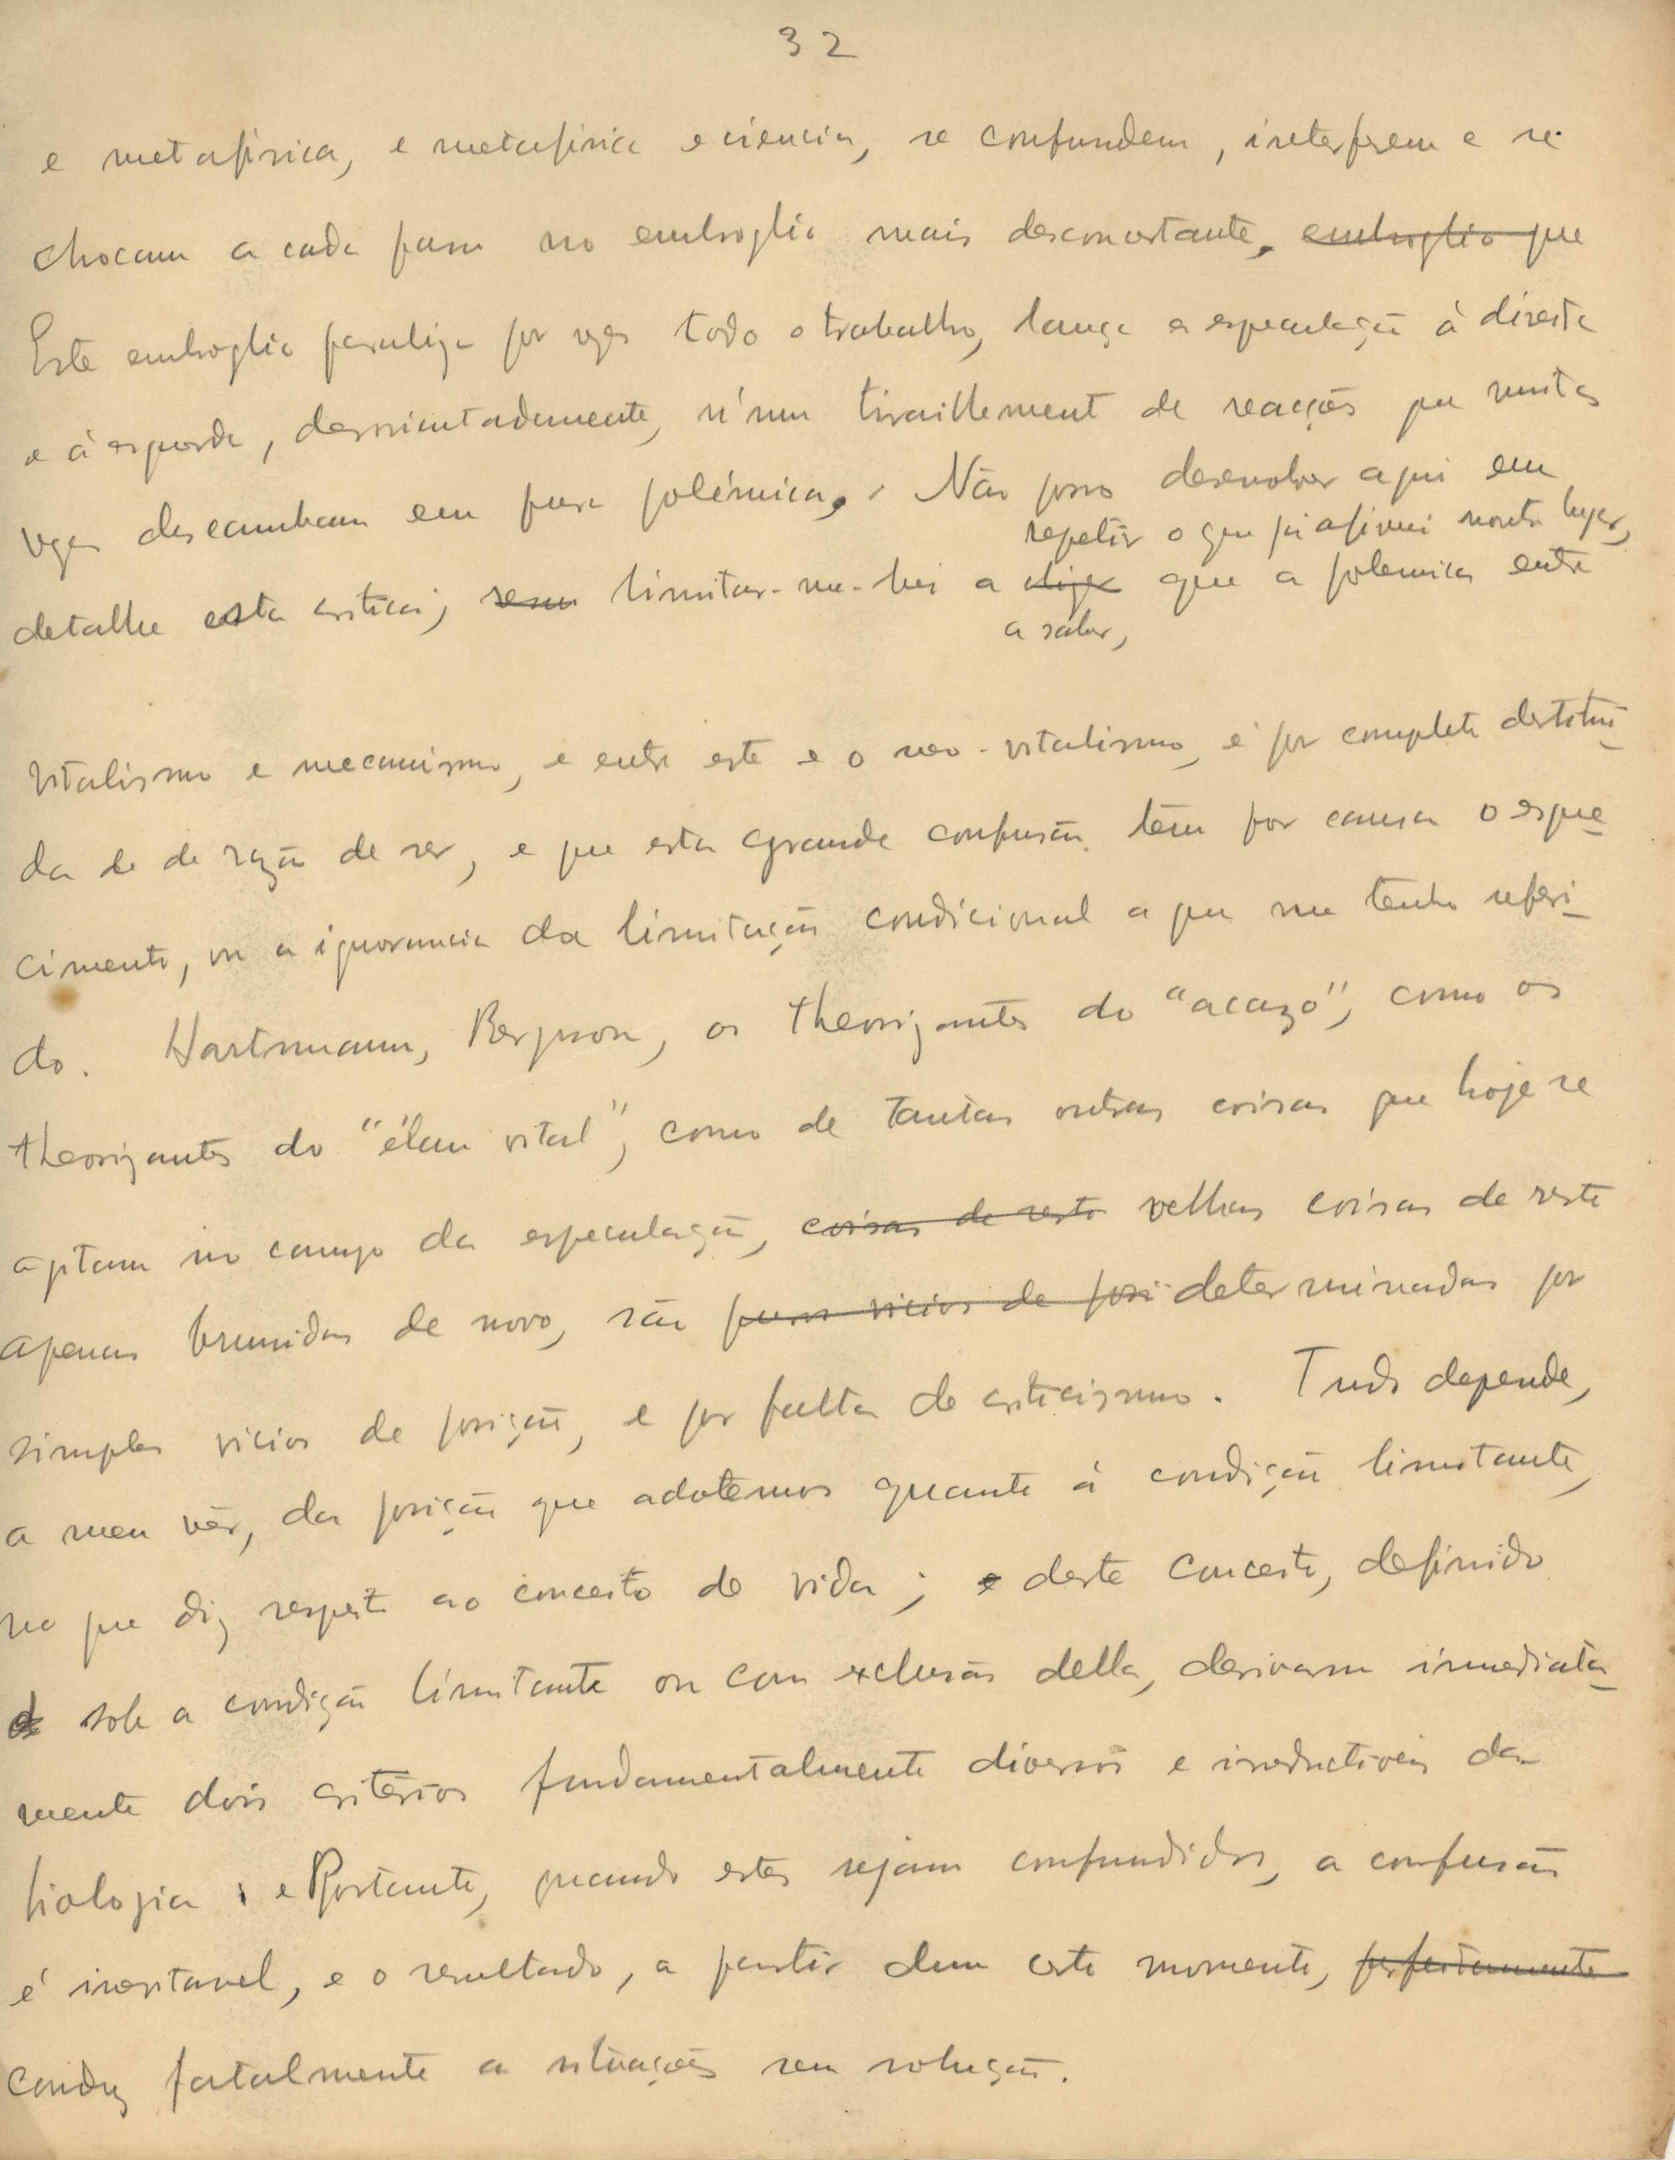 32
e metafisica, e metafisica e ciencia, se confundem, interferem e se
chocam a cada passo no embroglio mais desconcertante. embroglio que
Este embroglio paraliza por vezes todo o trabalho, lança a especulação á direita
e á esquerda, desorientadamente, n'um tiraillement de reacções que muitas
vezes descambam em pura polémica. Não posso desenvolver aqui em
repetir o que já afirmei noutro lugar,
detalhe esta critica; sem limitar-me-hei a dizer que a polemica entre
a saber,
vitalismo e mecanismo, e entre este e o neo-vitalismo, é por completo destitui-
da de de razão de ser, e que esta grande confusão tem por causa o esque-
cimento, ou a ignorancia da limitação condicional a que me tenho referi-
do. Hartmann, Bergson, os theorizantes do "acazo", como os
theorizantes do "élan vital", como de tantas outras coisas que hoje se
agitam no campo da especulação, coisas de resto velhas coisas de resto
apenas brunidas de novo, são puros vicios de posi- determinadas por
simples vicios de posição, e por falta de criticismo. Tudo depende,
a meu vêr, da posição que adotemos quanto á condição limitante,
no que diz respeito ao conceito de vida; e deste conceito, definido
sob a condição limitante ou com exclusão della, derivam immediata-
mente dois critérios fundamentalmente diversos e irreductiveis da
biologia; e Portanto, quando estes sejam confundidos, a confusão
é inevitavel, e o resultado, a partir dum certo momento, perfeitamente
conduz fatalmente a situações sem solução.